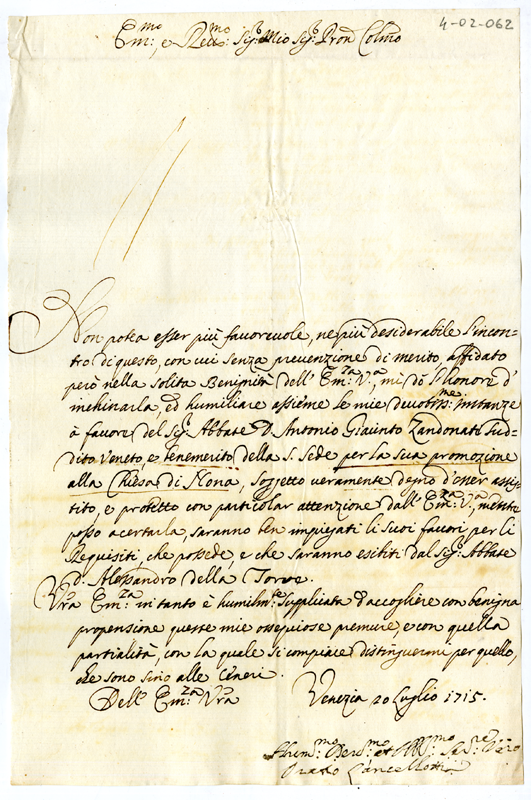 4-02-062
Em:mo, e Red:mo Sig:r Mio Sig:r Pron Colmo
Non potea esser più favorevole, ne più desiderabile l'incon-
tro di questo, con cui senza prevenzione di merito, affidato
però nella solita Benignità dell' Em:za V:a, mi dò l'honore d'
inchinarla, ed humiliare assieme le mie devotiss:me instanze
à favore del Sig:r Abbate D. Antonio Giacinto Zandonati Sud-
dito Veneto, e benemerito della S. Sede per la sua promozione
alla Chiesa di Nona, Soggetto veramente degno d'esser assis-
tito, e protetto con particolar attenzione dall' Em:za V:a, mentre
posso acertarla, saranno ben impiegati li suoi favori per li
Requisiti, che possede, e che saranno esibiti dal Sig:r Abbate
D. Alessandro della Torre.
Vra Em:za in tanto è humilm:te supplicata d'accogliere con benigna
propensione queste mie ossequiose premure, e con quella
partialità, con la quale si compiace distinguermi per quello,
che sono sino alle Ceneri.
Dell' Em:za Vra Venezia 20 Luglio 1715.
Hum:mo Dev:mo et
Orazio Lancellotti